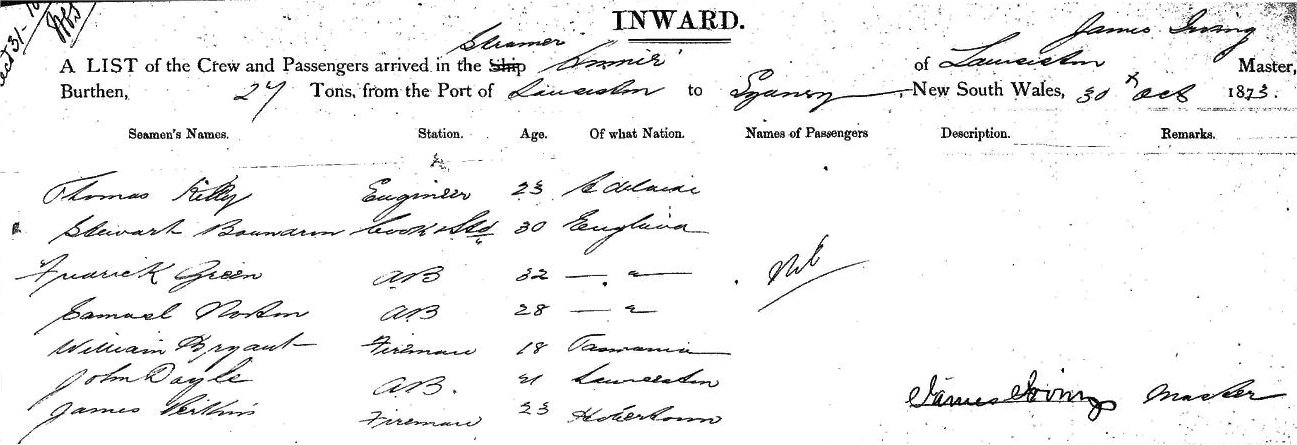 INWARD.
Steamer James Irving
A LIST of the Crew and Passengers arrived in the Ship of Launceston Master,
Burthen, 27 Tons, from the Port of Launceston to Sydney, New South Wales, 30 Oct 1873.
Seamen's Names. Station. Age. Of what Nation. Names of Passengers Description. Remarks.
Thomas Kelly Engineer 23 Adelaide
Stewart Cook & Std 30 England
Fredrick Green AB 32 — " Nil
Samuel Norton AB 28 — "
William Bryant Fireman 18 Tasmania
John Doyle AB. 21 Launceston
James Perkins Fireman 23 Hobertown James Irving Master